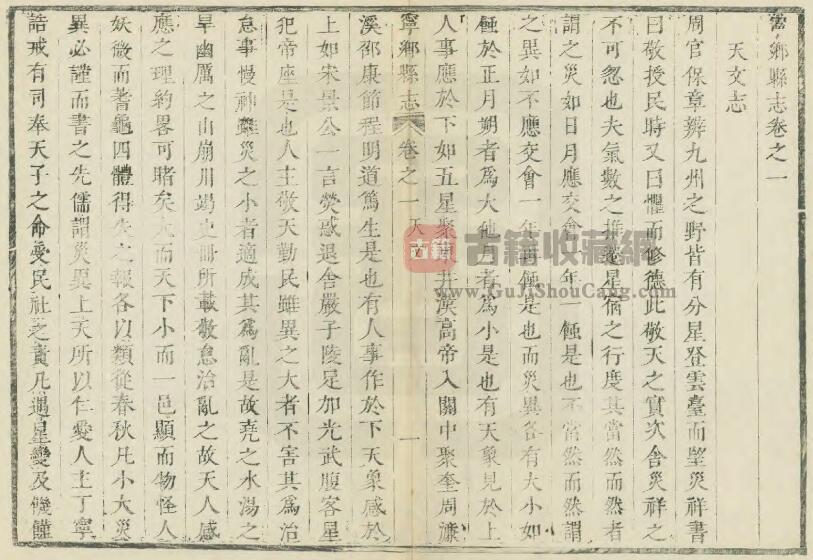 寧鄉縣志卷之一
天文志
周官保章辨九州之野皆有分星登雲臺而望災祥書
曰敬授民時又曰懼而修德此敬天之實次舍災祥之
不可忽也夫氣數之推遷星宿之行度其當然而然者
謂之災如日月應交會一年一蝕是也不當然而然謂
之異如不應交會一年再蝕是也而災異各有大小如
蝕於正月朔者爲大他月者爲小是也有天象見於上
人事應於下如五星聚東井漢高帝入關中聚奎周濂
寧鄉縣志
卷之一天文
一
溪邵康節程明道篤生是也有人事作於下天象感於
上如宋景公一言熒惑退舍嚴子陵足加光武腹客星
犯帝座是也人主敬天勤民雖異之大者不害其爲治
怠事慢神雖災之小者適成其爲亂是故堯之水湯之
旱幽厲之山崩川竭史冊所載敬怠治亂之故天人感
應之理約畧可睹矣大而天下小而一邑顯而物怪人
妖微而蓍龜四體得失之報各以類從春秋凡小大災
異必謹而書之先儒謂災異上天所以仁愛人主丁寧
誥戒有司奉天子之命受民社之責凡遇星變及饑饉
古籍
古籍收藏網
www.GuJiShouCang.com